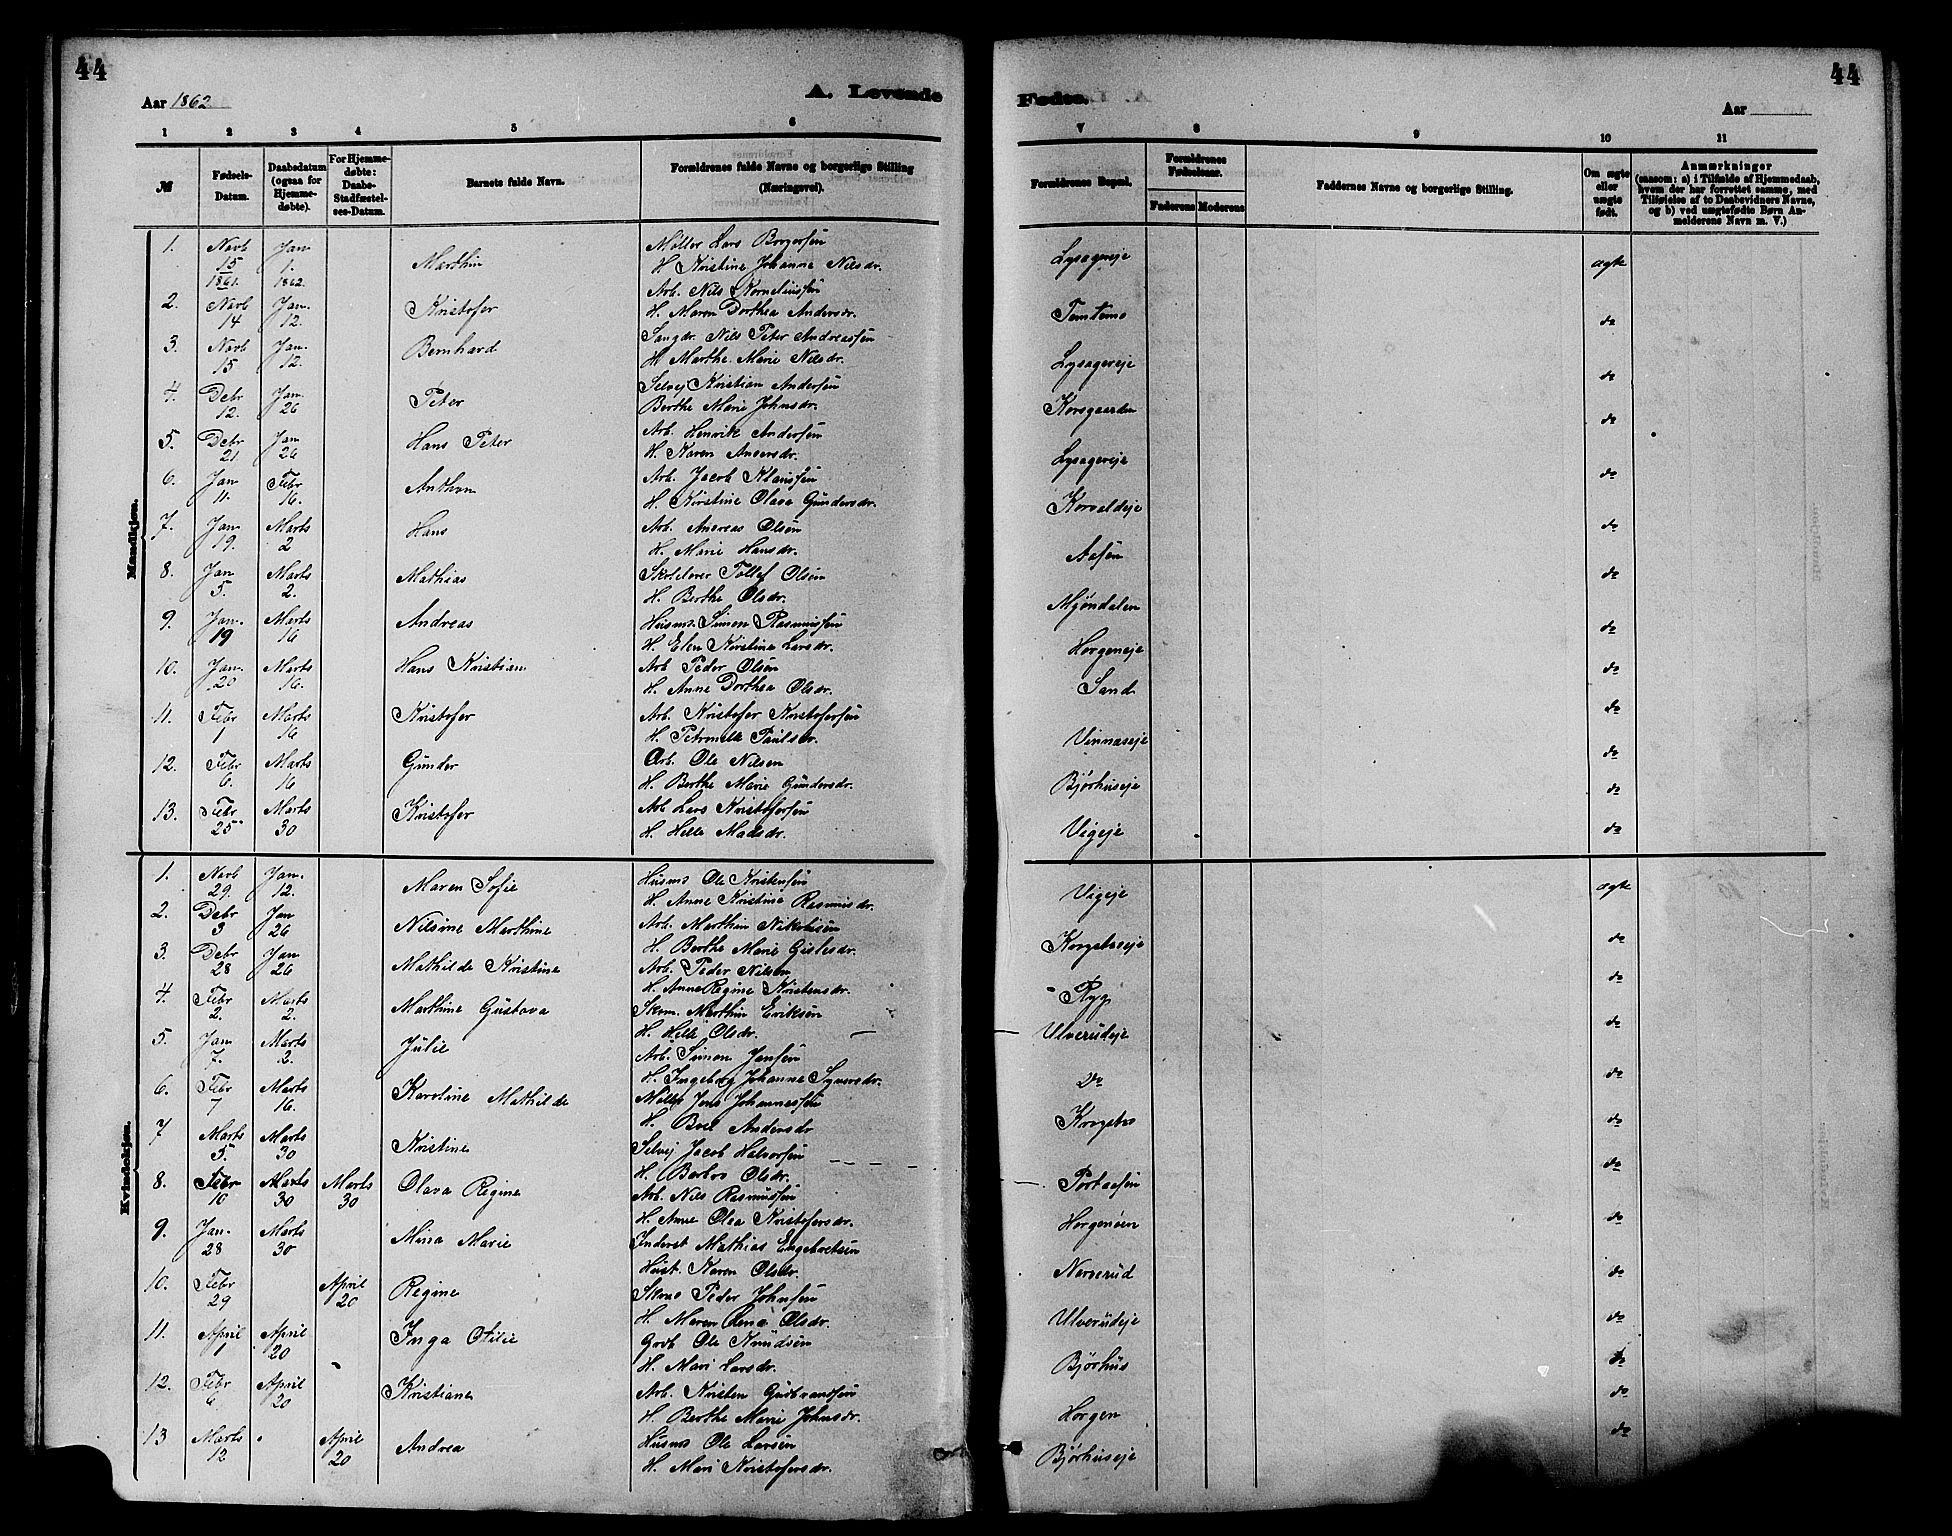 44
44
Aar 1862
A. Levende
Fødte.
Aar
1 2 3 4 5 6 7 8 9 10 11
№
Fødsels-Datum.
Daabsdatum (ogsaa for Hjemme-døbte).
For Hjemme-døbte: Daabs-Stadfæstel-ses-Datum.
Barnets fulde Navn.
Forældrenes fulde Navne og borgerlige Stilling (Næringsvei).
Forældrenes Bopæl.
Forældrenes Fødselsaar.
Faderens Moderens
Faddernes Navne og borgerlige Stilling.
Om ægte eller uægte født.
Anmærkninger
(saasom: a) i Tilfælde af Hjemmedaab, hvem der har forrettet samme, med Tilføielse af to Daabsvidners Navne, og b) ved uægtefødte Børn Anmelderens Navn m. V.)
Mandkjøn.
1. Novb 15 1861. Jan 1. 1862. Marthin Møller Lars Borgersen Lysagereje ægte
H. Kristine Johanne Nilsdr.
2. Novb 14 Jan. 12. Kristofer Arb. Nils Korneliussen Temtemo do
H. Maren Dorthea Andersdr.
3. Novb 15 Jan. 12. Bernhard Sangdr. Nils Peter Andreassen Lysagereje do
H. Marthe Marie Nilsdr.
4. Debr 12. Jan. 26 Peter Selvej Kristian Andersen Korsgaarden do
Berthe Marie Johnsdr.
5. Debr 21 Jan 26 Hans Peter Arb. Henrik Andersen Lysagereje do
H. Karen Anersdr.
6. Jan 11. Febr 16. Anthon Arb. Jacob Klausen Korvaldeje do
H. Kirstine Olava Gundersdr.
7. Jan. 19. Marts 2 Hans Arb. Andreas Olsen Aasen do
H. Marie Hansdr.
8. Jan 5. Marts 2. Mathias Skolelærer Tollef Olsen Mjøndalen do
H. Berthe Olsdr.
9. Jan. 19 Marts 16 Andreas Husms. Simon Rasmussen Horgeneje do
H. Elen Kirstine Larsdr.
10. Jan. 20 Marts 16. Hans Kristian Arb. Peder Olsen Sand do
H. Anne Dorthea Olsdr.
11. Febr 1 Marts 16 Kristofer Arb. Kristofer Kristofersen Vinnaseje do
H. Petronelle Paulsdr.
12. Febr 6. Marts 16 Gunder Arb. Ole Nilsen Bjørhuseje do
H. Berthe Marie Gundersdr.
13. Febr 25 Marts 30 Kristofer Arb. Lars Kristofersen Vigeje do
H. Helle Madsdr.
Kvindekjøn.
1. Novb 29. Jan. 12. Maren Sofie Husms Ole Kristensen Vigeje ægte
H. Anne Kristine Rasmusdr.
2. Debr 3 Jan 26 Nilsine Marthine Arb. Marthin Nikolaisen do
H. Berthe Marie Gislesdr.
3. Debr 28 Jan 26 Mathilde Kristine Arb. Peder Nilsen Ryg do
H. Anne Regine Kristensdr.
4. Febr 2. Marts 2. Marthine Gustava Skom. Marthin Eriksen Ulverudeje do
H. Helle Olsdr.
5. Jan 7. Marts 2. Julie Arb. Simon Jensen Do do
H. Ingeborg Johanne Syversdr.
6. Febr 7 Marts 16. Karoline Mathilde Møller Jens Johannessen do
H. Boel Andersdr
7 Marts 5. Marts 30 Kristine Selvej Jacob Halvorsen Portaasen do
H. Barbro Olsdr.
8. Febr 10 Marts 30 Marts 30 Olava Regine Arb. Nils Rasmussen Horgenøen do
H. Anne Olea Kristofersdr.
9. Jan. 28 Marts 30 Mina Marie Inderst Mathias Engebretsen Norverud do
Hust. Karen Olsdr.
10. Febr 29 April 20 Regine Skrue Peder Johnsen Ulverudeje do
H. Maren Lena Olsdr.
11. April 1 April 20 Inga Otilie Grdb Ole Knudsen Bjørhus do
H. Mari Larsdr.
12. Febr 6 April 20 Kristiane Arb. Kristen Gudbrandsen Horgen do
H. Berthe Marie Johnsdr.
13 Marts 12 April 20 Andrea Husms Ole Larsen Bjørhuseje do
H. Mari Kristofersdr.